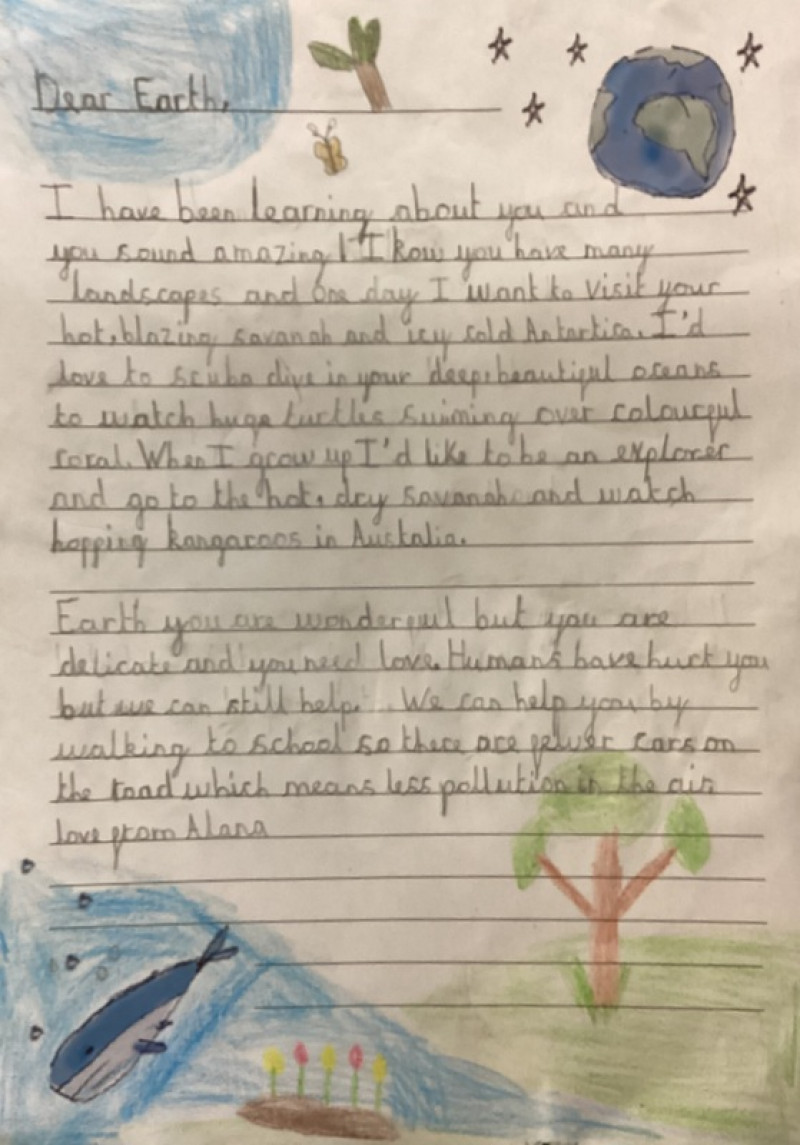 Dear Earth,
I have been learning about you and
you sound amazing! I kow you have many
landscapes and one day I want to visit your
hot, blazing savanah and icy cold Antartica. I'd
love to scuba dive in your deep, beautiful oceans
to watch huge turtles suiming over colourful
coral. When I grow up I'd like to be an explorer
and go to the hot, dry savanah and watch
hopping kangaroos in Austalia.
Earth you are wonderful but you are
delicate and you need love. Humans have hurt you
but we can still help. We can help you by
walking to school so there are fewer cars on
the road which means less pollution in the air
love from Alana